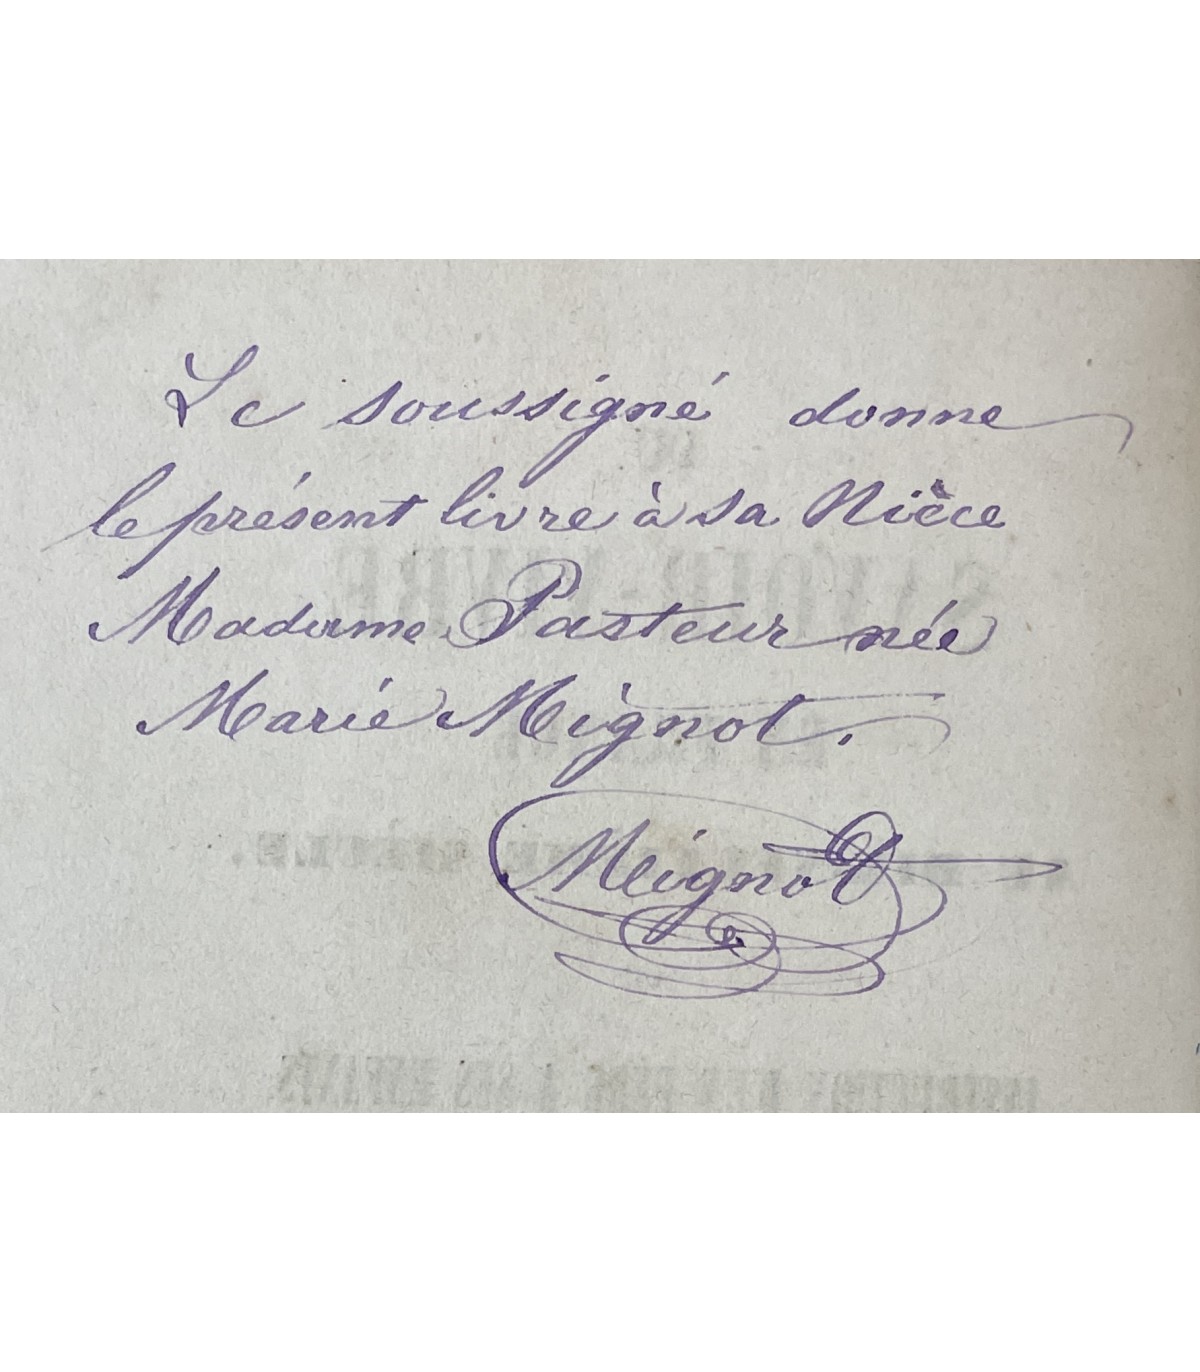 Le soussigné donne
le présent livre à sa Nièce
Madame Pasteur née
Marie Mignot.
Mignot